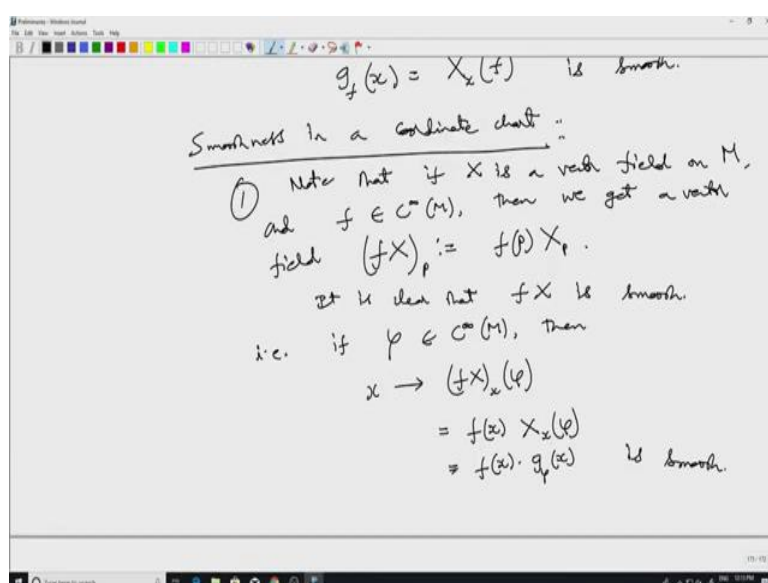 Preliminary - Windows Journal
File Edit View Insert Actions Tools Help
g_f(x) = X_x(f) is smooth.
Smoothness in a coordinate chart :
① Note that if X is a vector field on M,
and f ∈ C^∞(M), then we get a vector
field (fX)_p := f(p) X_p.
It is clear that fX is smooth.
i.e. if φ ∈ C^∞(M), then
x → (fX)_x(φ)
= f(x) X_x(φ)
= f(x) · g_φ(x) is smooth.